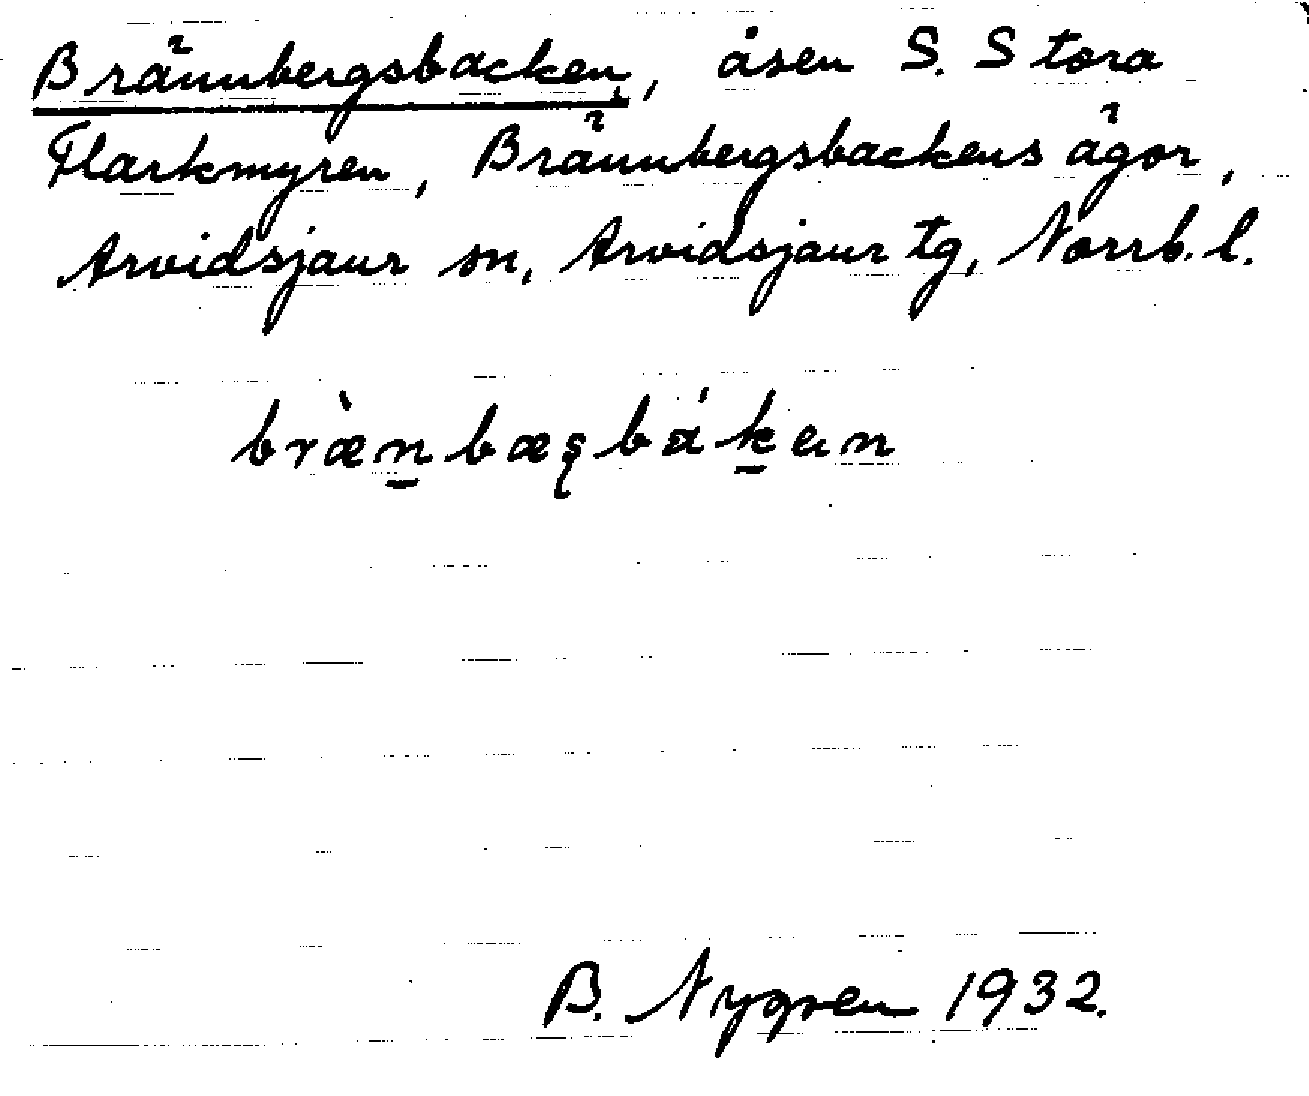 Brännbergsbacken, åsen S. Stora
Flarkmyren, Brännbergsbackens ägor,
Arvidsjaur sn, Arvidsjaur tg, Norrb. l.
bræ̀n̲bæʂbák̲en
B. Nygren 1932.